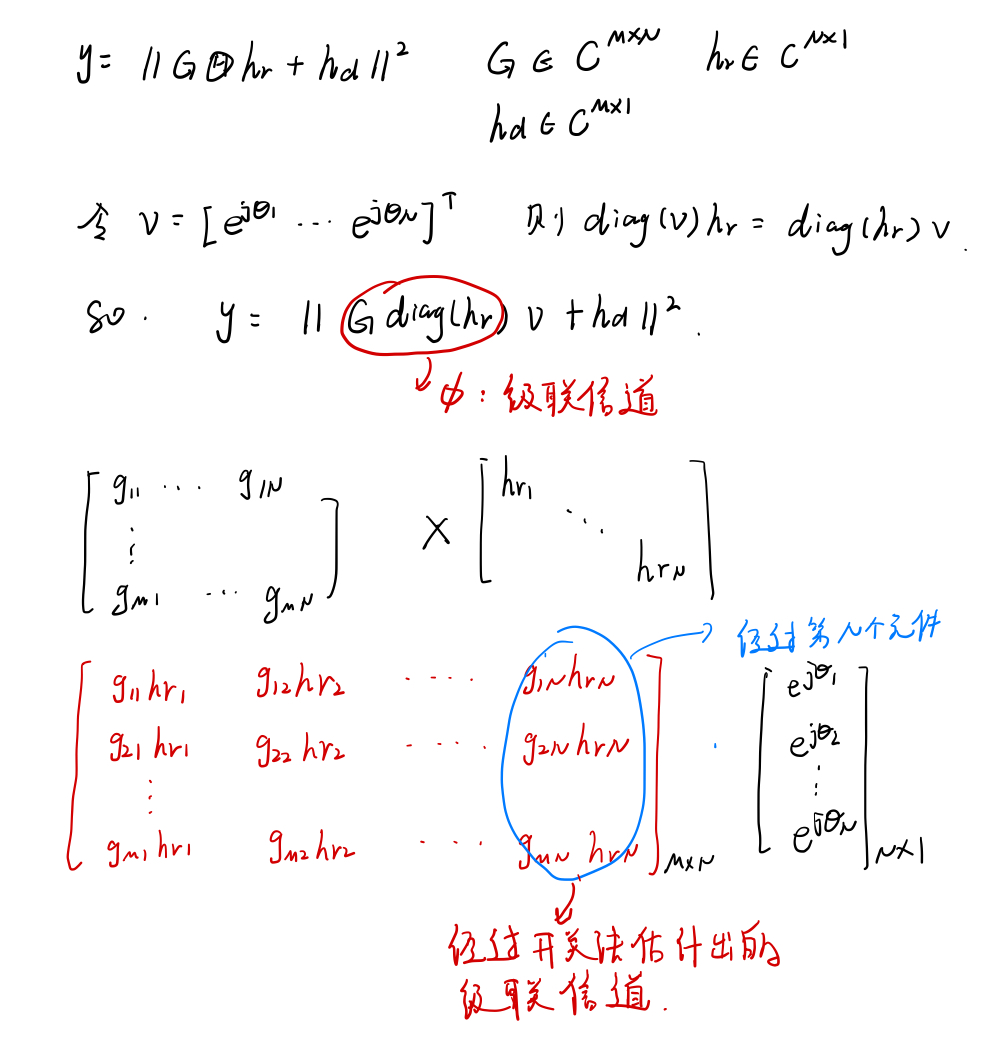 y = ||GΘhr + hd||² G ∈ C^{M×N} hr ∈ C^{N×1}
hd ∈ C^{M×1}
令 v = [e^{jθ₁} ··· e^{jθ_N}]^T 则 diag(v)hr = diag(hr)v.
so. y = ||G diag(hr) v + hd||².
ϕ: 级联信道
[g₁₁ ··· g_{1N}
⋮
g_{M1} ··· g_{MN}] × [hr₁
⋱
hr_N]
经过第N个元件
[g₁₁hr₁ g₁₂hr₂ ···· g_{1N}hr_N
g₂₁hr₁ g₂₂hr₂ ···· g_{2N}hr_N
⋮
g_{M1}hr₁ g_{M2}hr₂ ···· g_{MN}hr_N]_{M×N} · [e^{jθ₁}
e^{jθ₂}
⋮
e^{jθ_N}]_{N×1}
经过开关法估计出的
级联信道.